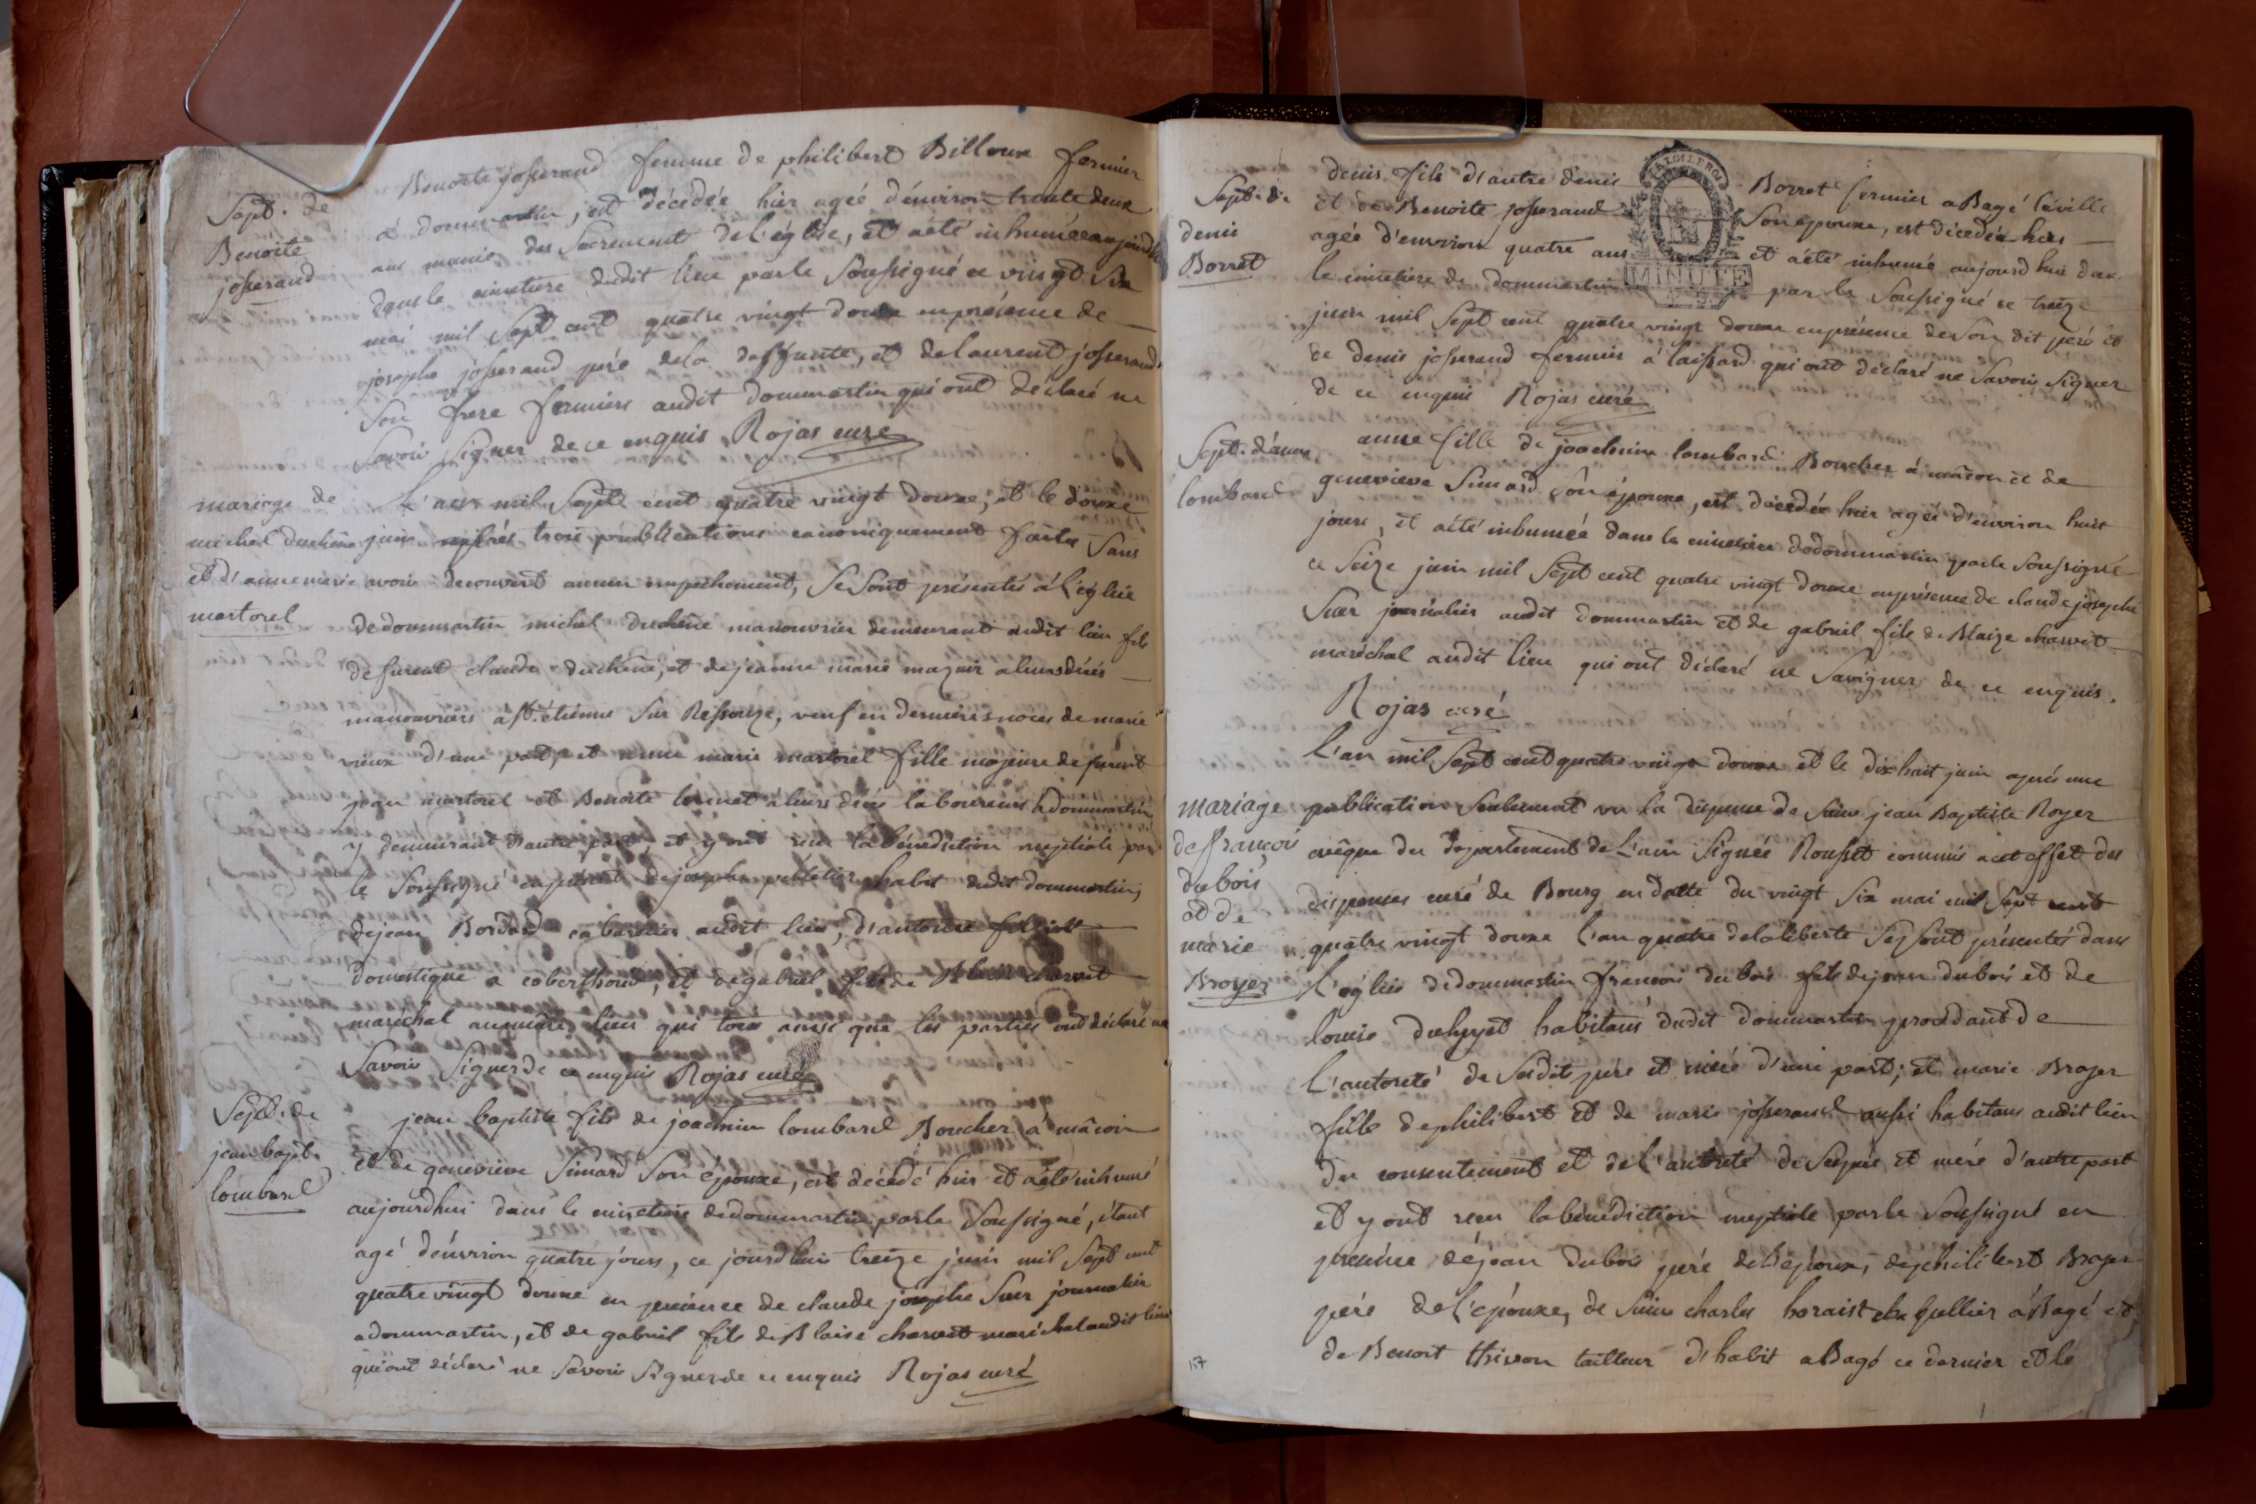 Sept. de
Benoite
josserand
Benoite josserand femme de philibert Billoux fermier
a dommartin, est décédée hier agée d'énviron trente deux
ans munie des Sacrement de l'église, et aété inhumée aujourdhui
dans le cimetiere dudit lieu par le Soussigné ce vingt Six
mai mil Sept cent quatre vingt douze en présence de
josephe josserand peré dela deffunte, et de laurent josserand
Son frere fermiers audit dommartin qui ont déclaré ne
Savoir Signer de ce enquis Rojas curé
mariage de
michel duchêne
et d'anne marie
martorel
L'an mil Sept cent quatre vingt douze, et le douze
juin aprés trois publications canoniquement faites Sans
avoir decouvert aucun empechement, Se Sont présentés à l'église
de dommartin michel duchêne manouvrier demeurant audit lieu fils
de furent claude duchêne, et de jeanne marie maguir a leurs décés
manouvriers à St. étienne Sur Ressouze, veuf en derniéres noces de marie
vieux d'une part, et anne marie martorel fille majeure de furent
jean martorel et Benoite à leurs décés laboureurs a dommartin
y demeurant d'autre part, et y ont reçu la bénédiction nuptiale par
le Soussigné en présence de josephe habit dudit dommartin,
de jean Bordad audit lieu, d'antoine
domestique a coberthoud, et de gabriel fils de Blaise charvet
maréchal au même lieu qui tous ainsi que les parties ont déclaré ne
Savoir Signer de ce enquis Rojas curé
Sept. de
jean bapt.
lombard
jean baptiste fils de joachim lombard Boucher à mâcon
et de geneviéve Simard Son épouse, est décédé hier et aété inhumé
aujourdhui dans le cimetiere de dommartin par le Soussigné, étant
agé d'énviron quatre jours, ce jourdhui treize juin mil Sept cent
quatre vingt douze en présence de claude josephe Suer journalier
a dommartin, et de gabriel fils de Blaise charvet maréchal audit lieu
qui ont déclaré ne Savoir Signer de ce enquis Rojas curé
Sept. de
denis
Borret
denis fils d'autre denis Borret fermier a Bagé laville
et de Benoite josserand Son épouse, est décédé hier
agée d'environ quatre ans et aété inhumé aujourd hui dans
le cimetiere de dommartin par le Soussigné ce treize
MINUTE
juin mil Sept cent quatre vingt douze en présence de Son dit peré et
de denis josserand fermier à laissard qui ont déclaré ne Savoir Signer
de ce enquis Rojas curé
Sept. d'anne
lombard
anne fille de joachim lombard Boucher à mâcon et de
genevieve Simard Son épouse, est décédée hier agée d'environ huit
jours, et aété inhumée dans le cimetiere de dommartin par le Soussigné
ce Seize juin mil Sept cent quatre vingt douze en présence de claude josephe
Suer journalier audit dommartin et de gabriel fils de Blaize charvet
maréchal audit lieu qui ont déclaré ne Savigner de ce enquis.
Rojas curé
mariage
de françois
dubois
et de
marie
Broyer
L'an mil Sept cent quatre vingt douze et le dix huit juin aprés une
publication Seulement vu la dispense de Sieur jean Baptiste Royer
evêque du département de l'ain Signée Rousset commis acet effet des
dispenses curé de Bourg en datte du vingt Six mai mil Sept cent
quatre vingt douze l'an quatre dela liberté Se Sont présentés dans
l'église de dommartin francois dubois fils de jean dubois et de
louise habitans dudit dommartin procédant de
l'autorité de Sesdit péré et méré d'une part; et marie Broyer
fille de philibert et de marie josserand aussi habitans audit lieu
du consentement et de l'autorité de Ses péré et méré d'autre part
et y ont reçu la bénédiction nuptiale par le Soussigné en
présence de jean dubois peré de l'epoux, de philibert Broyer
peré de l'epouse, de Sieur charles à Bagé et
de Benoit thivon tailleur d'habit a Bagé ce dernier et le
157